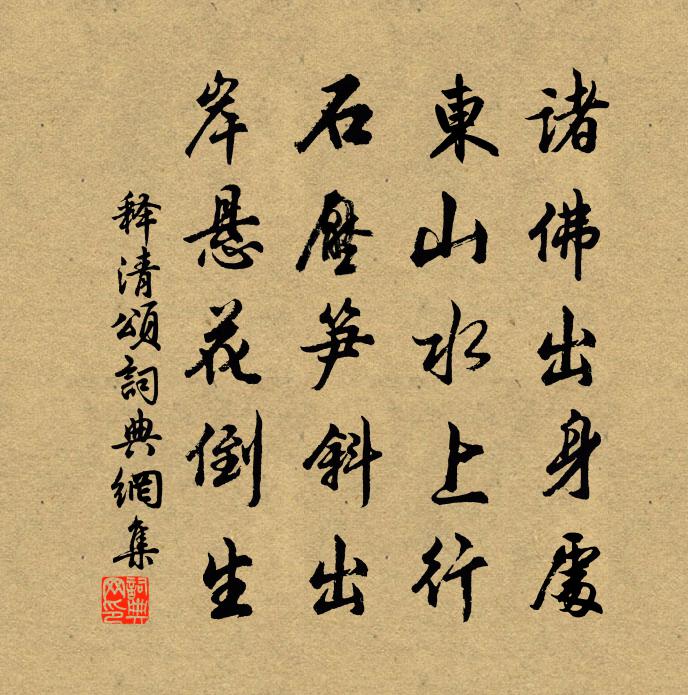 諸佛出身處
東山水上行
石壓笋斜出
岸悬花倒生
释清頌詞典網集
詞典网印